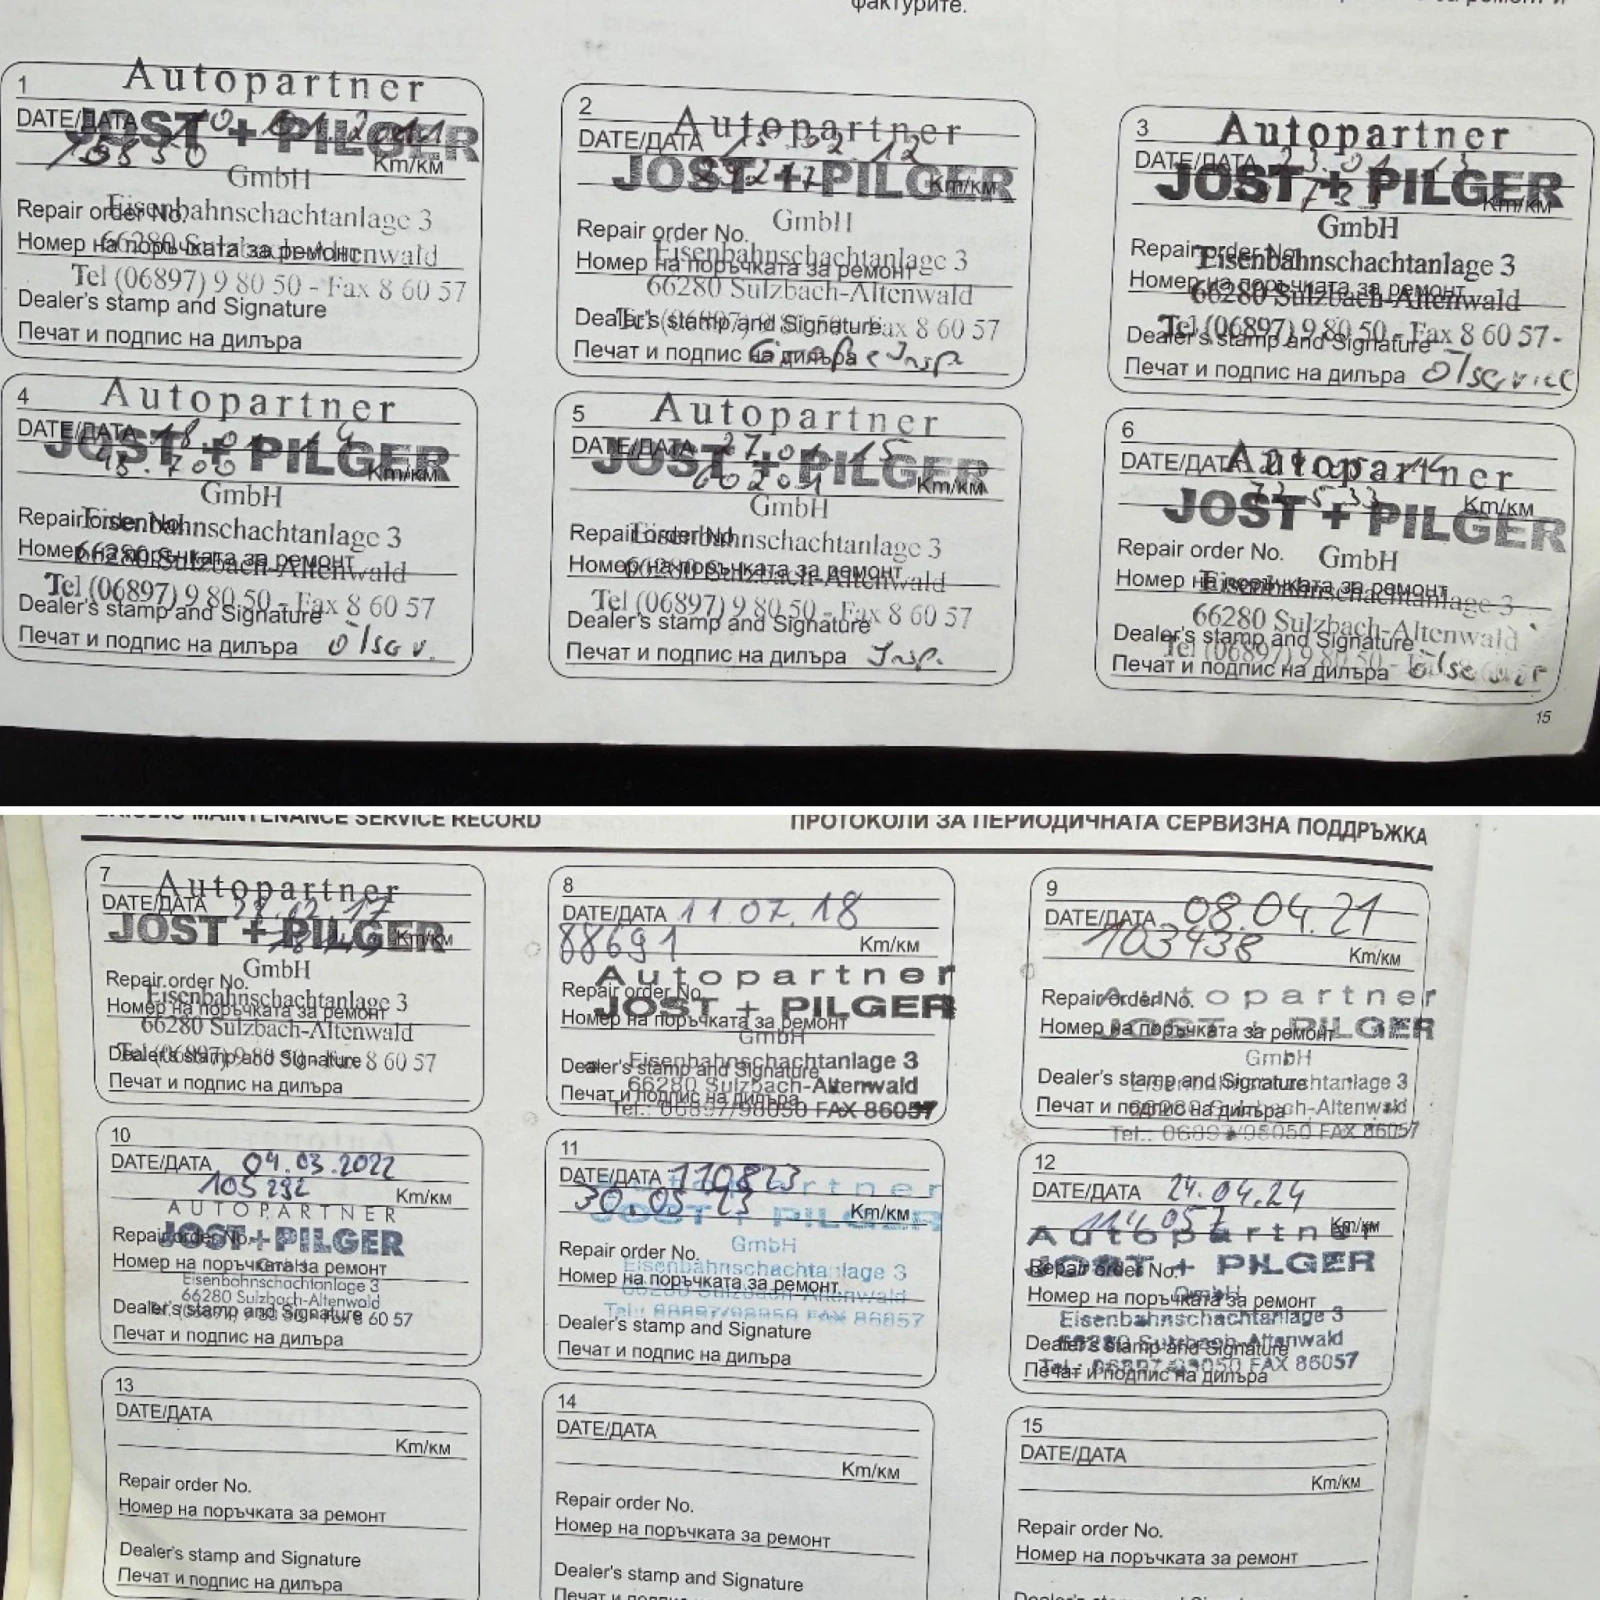 фактурите.
1
Autopartner
DATE/ДАТА
JOST + PILGER
Km/км
GmbH
Repair order No.
Eisenbahnschachtanlage 3
Номер на поръчката за ремонт
66280 Sulzbach-Altenwald
Tel (06897) 9 80 50 - Fax 8 60 57
Dealer's stamp and Signature
Печат и подпис на дилъра
2
Autopartner
DATE/ДАТА
JOST + PILGER
Km/км
GmbH
Repair order No.
Eisenbahnschachtanlage 3
Номер на поръчката за ремонт
66280 Sulzbach-Altenwald
Dealer's stamp and Signature
Tel (06897) 9 80 50 - Fax 8 60 57
Печат и подпис на дилъра
3
Autopartner
DATE/ДАТА
JOST + PILGER
Km/км
GmbH
Repair order No.
Eisenbahnschachtanlage 3
Номер на поръчката за ремонт
66280 Sulzbach-Altenwald
Tel (06897) 9 80 50 - Fax 8 60 57
Dealer's stamp and Signature
Печат и подпис на дилъра Ölservice
4
Autopartner
DATE/ДАТА 18.01.14
JOST + PILGER
45.700 Km/км
GmbH
Repair order No.
Eisenbahnschachtanlage 3
Номер на поръчката за ремонт
66280 Sulzbach-Altenwald
Tel (06897) 9 80 50 - Fax 8 60 57
Dealer's stamp and Signature
Печат и подпис на дилъра Ölserv.
5
Autopartner
DATE/ДАТА 27.01.15
JOST + PILGER
Km/км
GmbH
Repair order No.
Eisenbahnschachtanlage 3
Номер на поръчката за ремонт
66280 Sulzbach-Altenwald
Tel (06897) 9 80 50 - Fax 8 60 57
Dealer's stamp and Signature
Печат и подпис на дилъра Insp.
6
Autopartner
DATE/ДАТА
Km/км
JOST + PILGER
Repair order No.
GmbH
Номер на поръчката за ремонт
Eisenbahnschachtanlage 3
66280 Sulzbach-Altenwald
Dealer's stamp and Signature
Печат и подпис на дилъра
15
PERIODIC MAINTENANCE SERVICE RECORD
ПРОТОКОЛИ ЗА ПЕРИОДИЧНАТА СЕРВИЗНА ПОДДРЪЖКА
7
Autopartner
DATE/ДАТА
JOST + PILGER
Km/км
GmbH
Repair order No.
Eisenbahnschachtanlage 3
Номер на поръчката за ремонт
66280 Sulzbach-Altenwald
Tel (06897) 9 80 50 - Fax 8 60 57
Dealer's stamp and Signature
Печат и подпис на дилъра
8
DATE/ДАТА 11.07.18
88691 Km/км
Autopartner
Repair order No.
JOST + PILGER
Номер на поръчката за ремонт
GmbH
Eisenbahnschachtanlage 3
Dealer's stamp and Signature
66280 Sulzbach-Altenwald
Печат и подпис на дилъра
Tel.: 06897/98050 FAX 86057
9
DATE/ДАТА 08.04.21
103438 Km/км
Repair order No.
Autopartner
JOST + PILGER
Номер на поръчката за ремонт
GmbH
Dealer's stamp and Signature
Eisenbahnschachtanlage 3
66280 Sulzbach-Altenwald
Печат и подпис на дилъра
Tel.: 06897/98050 FAX 86057
10
DATE/ДАТА 04.03.2022
105292 Km/км
AUTOPARTNER
Repair order No.
JOST + PILGER
Номер на поръчката за ремонт
GmbH
Eisenbahnschachtanlage 3
66280 Sulzbach-Altenwald
Dealer's stamp and Signature
Печат и подпис на дилъра
11
DATE/ДАТА 110823
Autopartner
30.05.23 Km/км
JOST + PILGER
GmbH
Repair order No.
Eisenbahnschachtanlage 3
Номер на поръчката за ремонт
66280 Sulzbach-Altenwald
Tel.: 06897/98050 FAX 86057
Dealer's stamp and Signature
Печат и подпис на дилъра
12
DATE/ДАТА 24.04.24
114057 Km/км
Autopartner
JOST + PILGER
Repair order No.
GmbH
Номер на поръчката за ремонт
Eisenbahnschachtanlage 3
66280 Sulzbach-Altenwald
Dealer's stamp and Signature
Tel.: 06897/98050 FAX 86057
Печат и подпис на дилъра
13
DATE/ДАТА
Km/км
Repair order No.
Номер на поръчката за ремонт
Dealer's stamp and Signature
Печат и подпис на дилъра
14
DATE/ДАТА
Km/км
Repair order No.
Номер на поръчката за ремонт
Dealer's stamp and Signature
Печат и подпис на дилъра
15
DATE/ДАТА
Km/км
Repair order No.
Номер на поръчката за ремонт
Dealer's stamp and Signature